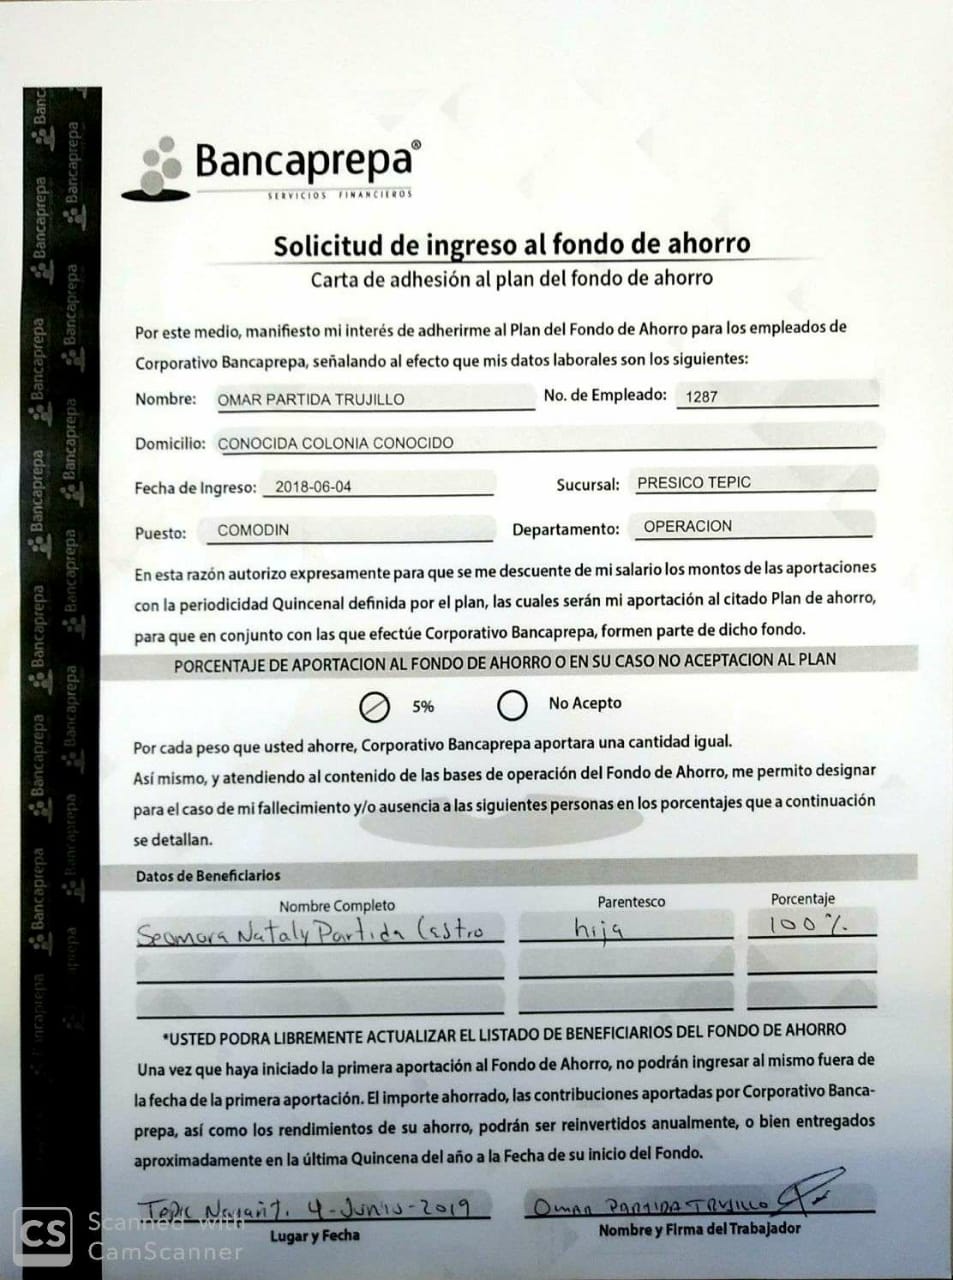 Bancaprepa®
SERVICIOS FINANCIEROS
Solicitud de ingreso al fondo de ahorro
Carta de adhesión al plan del fondo de ahorro
Por este medio, manifiesto mi interés de adherirme al Plan del Fondo de Ahorro para los empleados de
Corporativo Bancaprepa, señalando al efecto que mis datos laborales son los siguientes:
Nombre: OMAR PARTIDA TRUJILLO No. de Empleado: 1287
Domicilio: CONOCIDA COLONIA CONOCIDO
Fecha de Ingreso: 2018-06-04 Sucursal: PRESICO TEPIC
Puesto: COMODIN Departamento: OPERACION
En esta razón autorizo expresamente para que se me descuente de mi salario los montos de las aportaciones
con la periodicidad Quincenal definida por el plan, las cuales serán mi aportación al citado Plan de ahorro,
para que en conjunto con las que efectúe Corporativo Bancaprepa, formen parte de dicho fondo.
PORCENTAJE DE APORTACION AL FONDO DE AHORRO O EN SU CASO NO ACEPTACION AL PLAN
5% No Acepto
Por cada peso que usted ahorre, Corporativo Bancaprepa aportara una cantidad igual.
Así mismo, y atendiendo al contenido de las bases de operación del Fondo de Ahorro, me permito designar
para el caso de mi fallecimiento y/o ausencia a las siguientes personas en los porcentajes que a continuación
se detallan.
Datos de Beneficiarios
Nombre Completo Parentesco Porcentaje
Seomara Nataly Partida Castro hija 100%
*USTED PODRA LIBREMENTE ACTUALIZAR EL LISTADO DE BENEFICIARIOS DEL FONDO DE AHORRO
Una vez que haya iniciado la primera aportación al Fondo de Ahorro, no podrán ingresar al mismo fuera de
la fecha de la primera aportación. El importe ahorrado, las contribuciones aportadas por Corporativo Banca-
prepa, así como los rendimientos de su ahorro, podrán ser reinvertidos anualmente, o bien entregados
aproximadamente en la última Quincena del año a la Fecha de su inicio del Fondo.
Tepic Nayarit. 4-Junio-2019 OMAR PARTIDA TRUJILLO
Lugar y Fecha Nombre y Firma del Trabajador
CS Scanned with
CamScanner